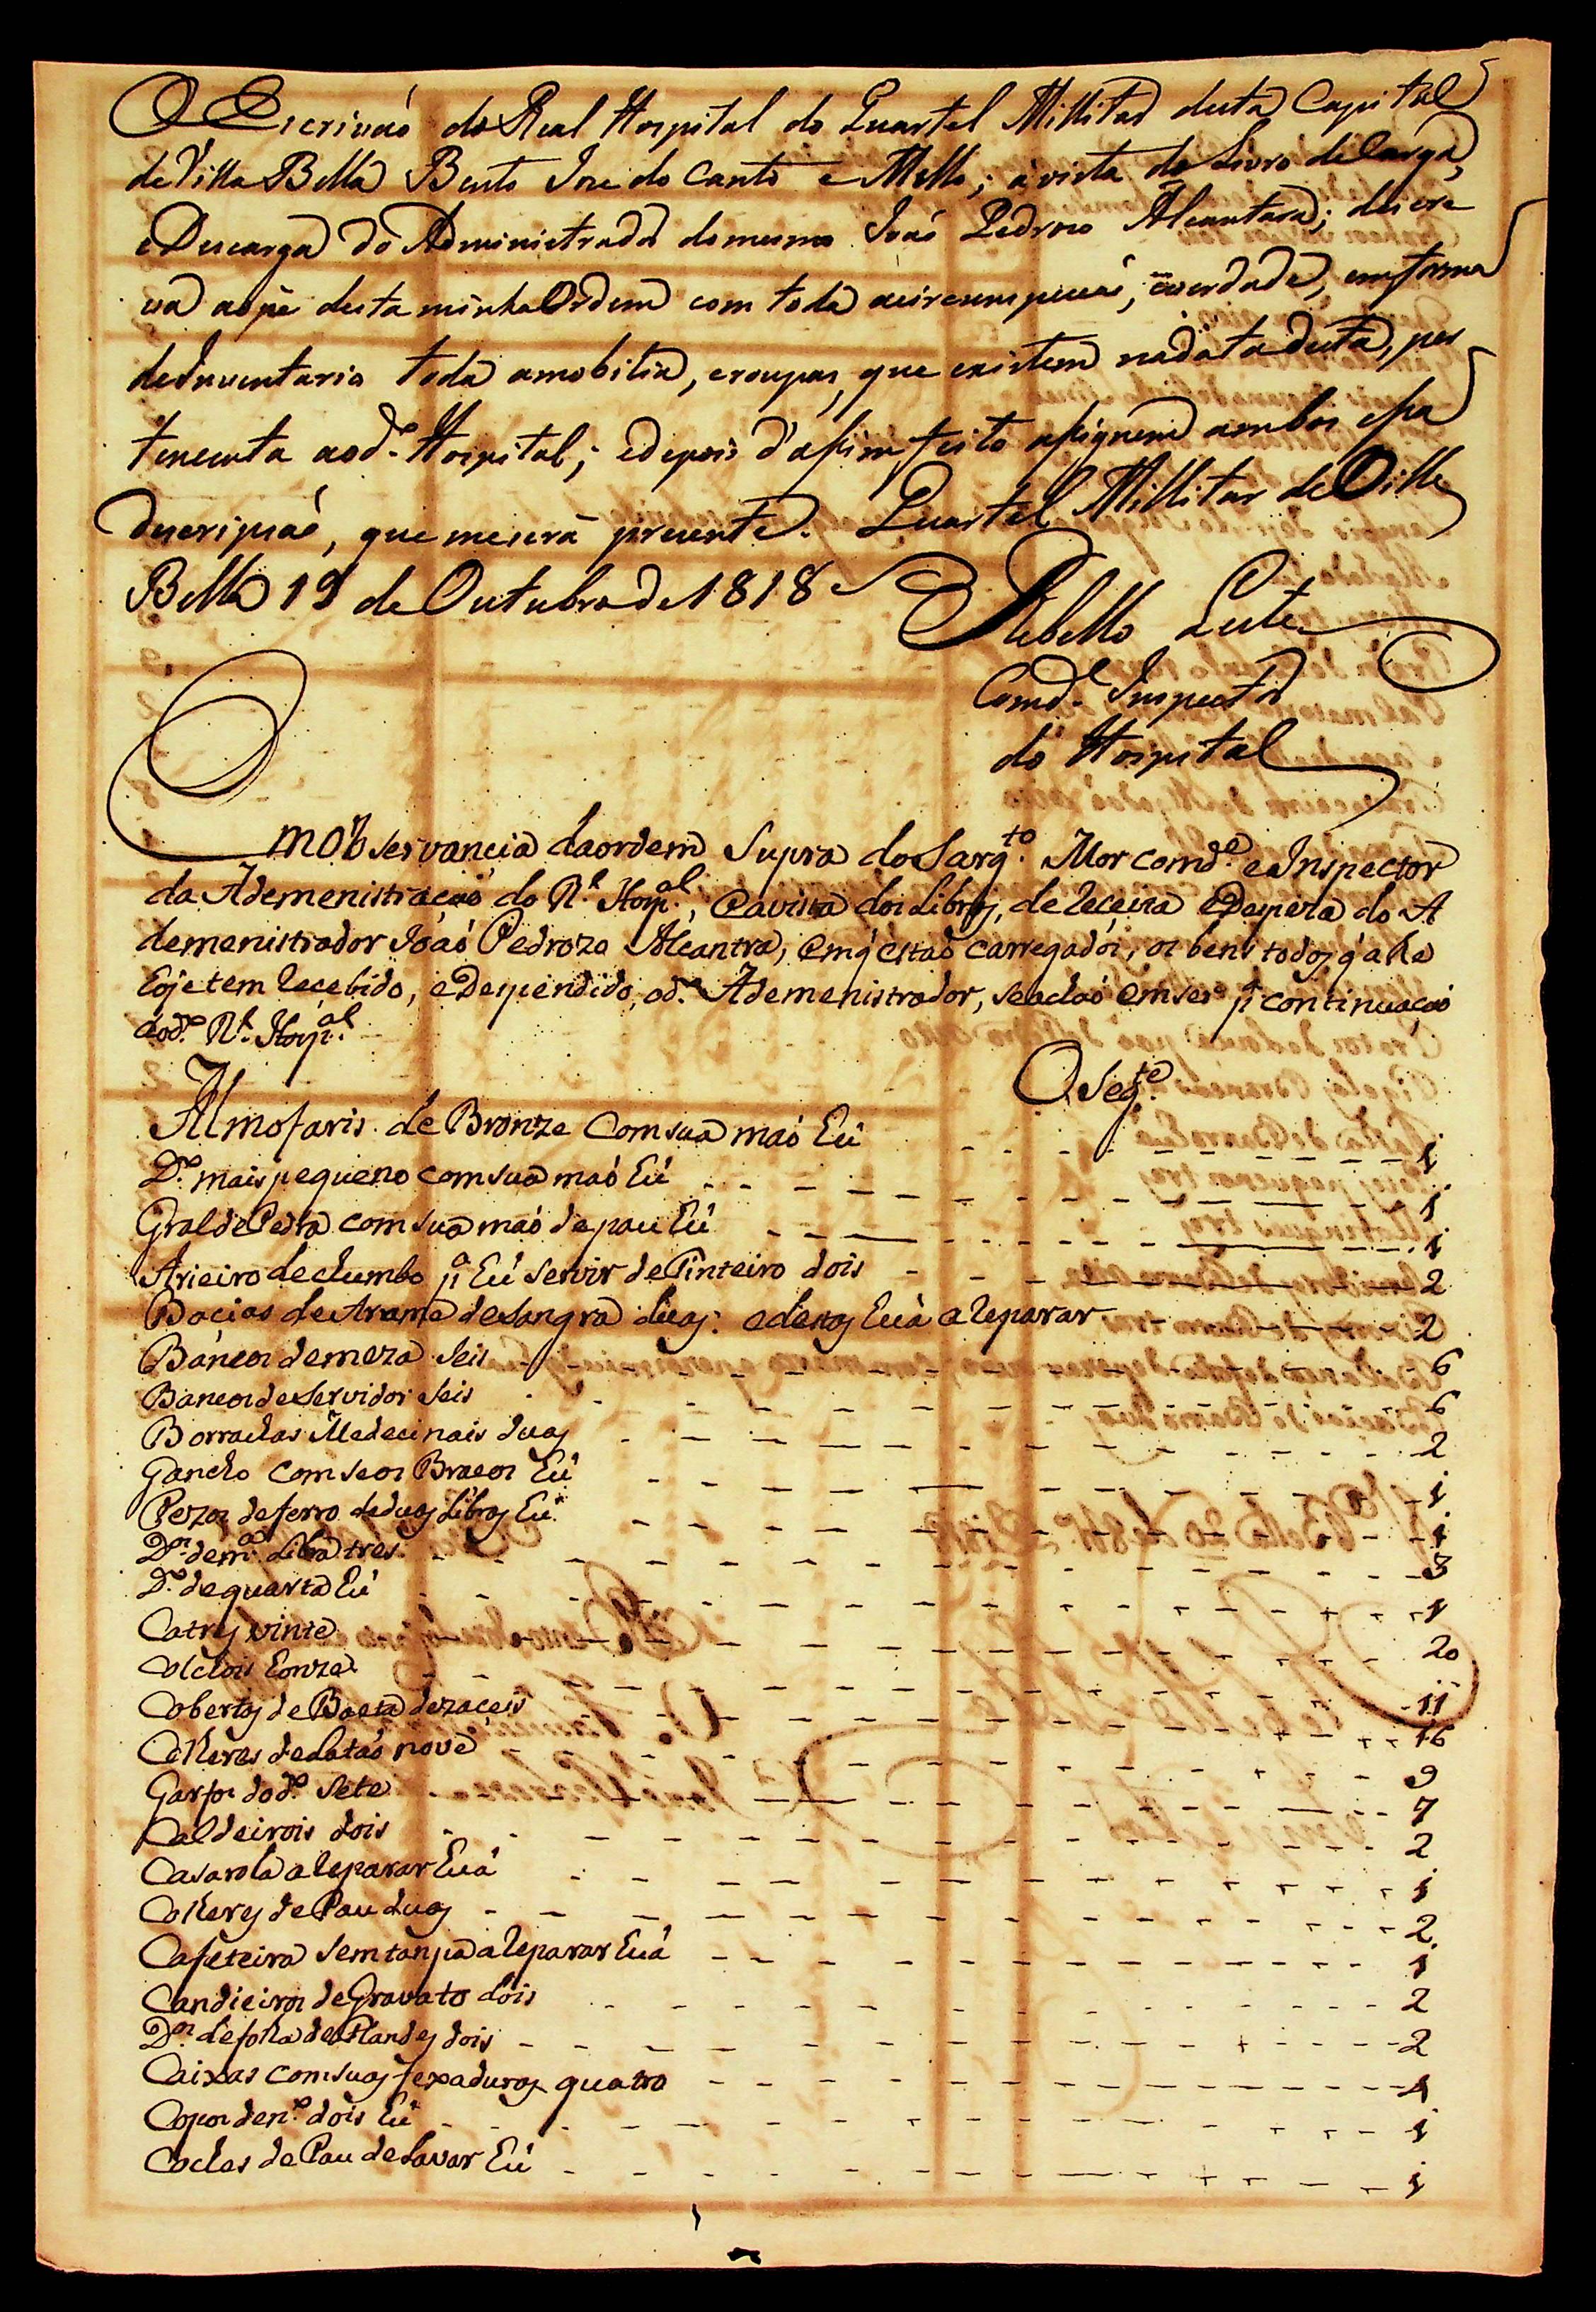 O Escrivaõ do Real Hospital do Quartel Millitar desta Capital
de Villa Bella Bento Joze do Canto e Mello; á vista do Livro de Carga,
e Descarga do Administrador do mesmo Joaõ Pedrozo Alcantara; descre
va aopé desta minha Ordem com toda acircunspecçaõ, everdade, emforma
deInventario toda amobilia, eroupas, que existem nadata desta, per
tencente aod.º Hospital; edepois d'assim feito assignem ambos essa
descripçaõ, que meserá prezente. Quartel Millitar de Villa
Bella 19 de Outubro de 1818
Rebello Leite
Comd.e Inspector
do Hospital
Em Observancia daordem Supra do Sarg.to Mor comd.e e Inspector
da Ademenistraçaõ do R.l Hosp.al, e avista dos Libros, de receita e Despeza do A
demenistrador Joaõ Pedrozo Alcantra, em q̃ estaõ carregados, os bens todos q̃ athe
Eoje tem recebido, e Despendido, od.º Ademenistrador, se achaõ em ser p.a continuaçaõ
dod.º R.l Hosp.al
O Seg.te
Almofaris de Bronze Com sua maõ Eú 1
D.º mais pequeno com sua maõ Eú 1
Gral de Pedra com sua maõ de pau Eú 1
Arieiro de chumbo p.a Eú servir de Tinteiro dois 2
Bacias de Arame de Sangra duas: e destas Euá a reparar 2
Bancos de meza Seis 6
Bancos de Servidor Seis 6
Borrachas Medecinais duas 2
Gancho com seos Bracos Eú 1
Pezos de ferro de duas Libras Eú 1
D.os de m.a Libra tres 3
D.º de quarta Eú 1
Catres vinte 20
Colchois Eonze 11
Cobertas de Baeta dezaceis 16
Colheres de Lataõ nove 9
Garfos do d.º Sete 7
Caldeirois dois 2
Casarola a reparar Euá 1
Colheres de Pau duas 2
Cafeteira Sem tanpa a reparar Euá 1
Candieiros de Gravato dois 2
D.os de folha de Flandes dois 2
Caixas com suas fexaduras quatro 4
Copos de n.º dois Eú 1
Coches de Pau de Lavar Eú 1